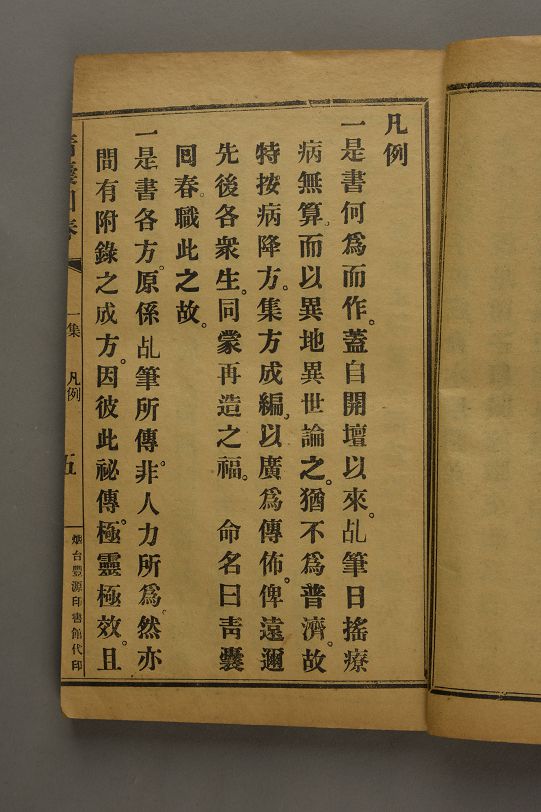 凡例
一是書何爲而作。蓋自開壇以來。乩筆日搖療
病無算。而以異地異世論之。猶不爲普濟。故
特按病降方。集方成編。以廣爲傳佈。俾遠邇
先後各衆生。同蒙再造之福。 命名曰靑囊
回春。職此之故。
一是書各方。原係乩筆所傳。非人力所爲。然亦
間有附錄之成方。因彼此祕傳。極靈極效。且
靑囊回春 一集 凡例 五 烟台豐源印書館代印